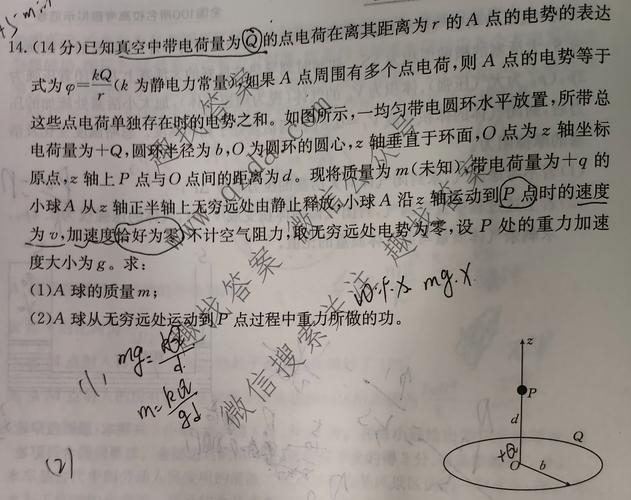 +5min
14.(14分)已知真空中带电荷量为Q的点电荷在离其距离为r的A点的电势的表达
式为φ=kQ/r(k为静电力常量),如果A点周围有多个点电荷,则A点的电势等于
这些点电荷单独存在时的电势之和。如图所示,一均匀带电圆环水平放置,所带总
电荷量为+Q,圆环半径为b,O为圆环的圆心,z轴垂直于环面,O点为z轴坐标
原点,z轴上P点与O点间的距离为d。现将质量为m(未知)、带电荷量为+q的
小球A从z轴正半轴上无穷远处由静止释放,小球A沿z轴运动到P点时的速度
为v,加速度恰好为零,不计空气阻力,取无穷远处电势为零,设P处的重力加速
度大小为g。求:
(1)A球的质量m;
(2)A球从无穷远处运动到P点过程中重力所做的功。
mg.x
(1), mg=kQ/d
m=kQ/gd
(2)
z
P
d
Q
+Q
O
b
趣找答案
www.qzda.com
微信公众号
趣找答案
趣找答案
微信搜索关注